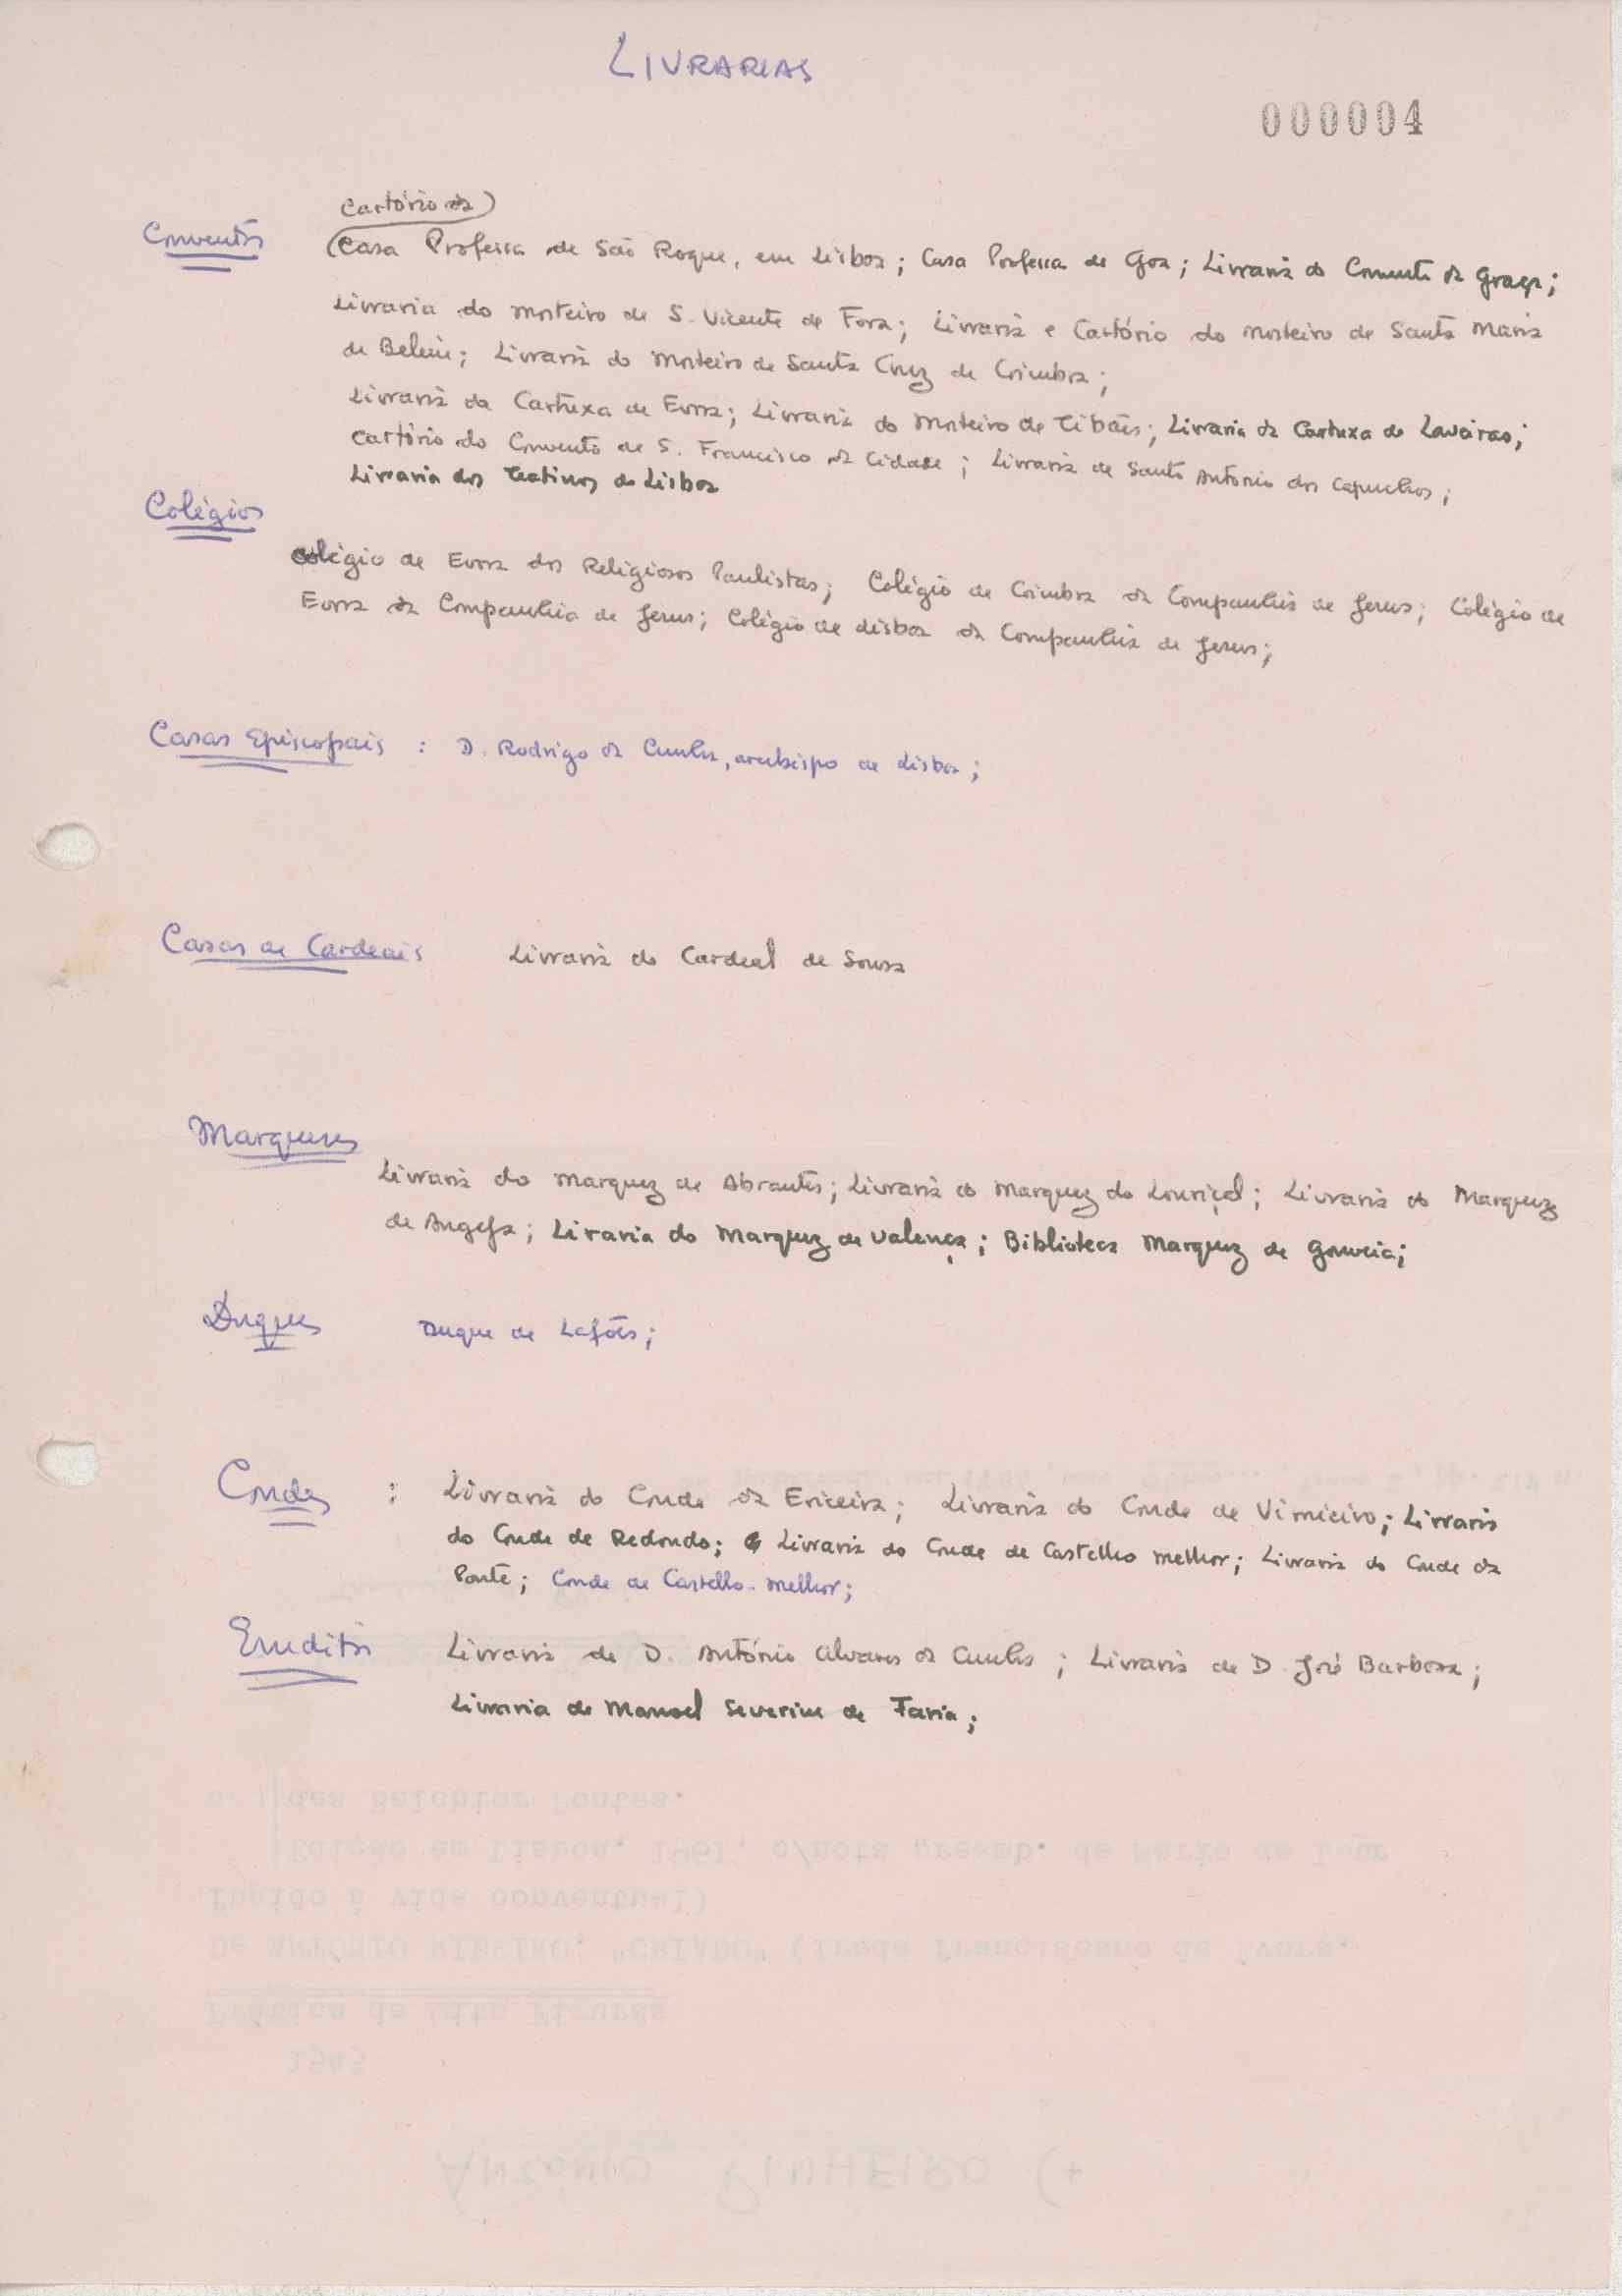 LIVRARIAS
000004
Cartório da
Conventos
Casa Professa de São Roque, em Lisboa; Casa Professa de Goa; Livraria do Convento da Graça;
Livraria do Mosteiro de S. Vicente de Fora; Livraria e Cartório do Mosteiro de Santa Maria
de Belém; Livraria do Mosteiro de Santa Cruz de Coimbra;
Livraria da Cartuxa de Evora; Livraria do Mosteiro de Tibães; Livraria da Cartuxa de Laveiras;
Cartório do Convento de S. Francisco da Cidade; Livraria de Santo Antonio dos Capuchos;
Livraria dos Teatinos de Lisboa
Colégios
Colégio de Evora dos Religiosos Paulistas; Colégio de Coimbra da Companhia de Jesus; Colégio de
Evora da Companhia de Jesus; Colégio de Lisboa da Companhia de Jesus;
Casas Episcopais : D. Rodrigo da Cunha, arcebispo de Lisboa;
Casas de Cardeais Livraria do Cardeal de Sousa
Marqueses
Livraria do Marquez de Abrantes; Livraria do Marquez do Louriçal; Livraria do Marquez
de Angeja; Livraria do Marquez de Valença; Biblioteca Marquez de Gouveia;
Duques Duque de Lafões;
Condes : Livraria do Conde da Ericeira; Livraria do Conde de Vimieiro; Livraria
do Conde de Redondo; Livraria do Conde de Castello Melhor; Livraria do Conde da
Ponte; Conde de Castello-Melhor;
Eruditos Livraria de D. António Alvares da Cunha; Livraria de D. José Barbosa;
Livraria de Manoel Severim de Faria;